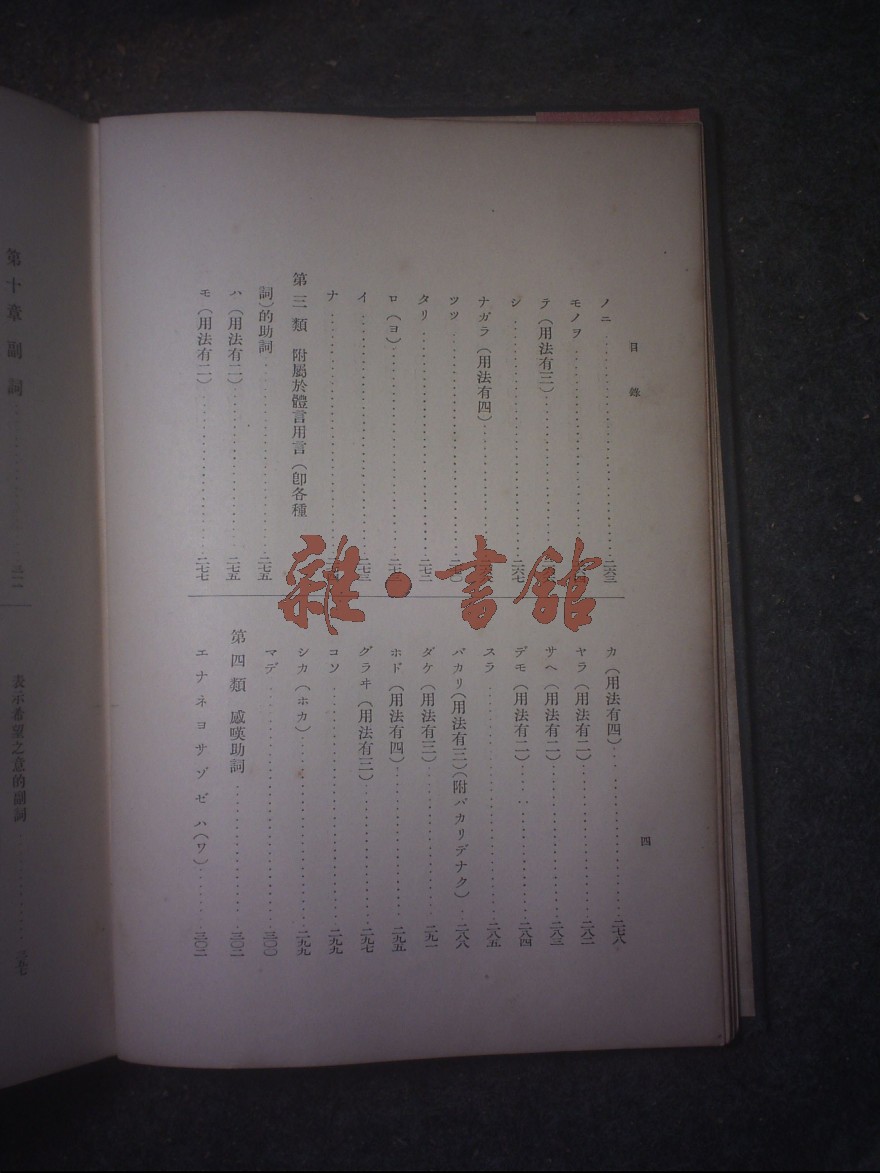 目錄
ノニ……二六三
モノヲ……
テ（用法有三）……
シ……二六七
ナガラ（用法有四）……
ツツ……二七〇
タリ……二七二
ロ（ヨ）……
イ……二七三
ナ……
第三類 附屬於體言用言（卽各種
詞）的助詞……二七五
ハ（用法有二）……二七五
モ（用法有二）……二七七
カ（用法有四）……二七八
ヤラ（用法有二）……二八二
サヘ（用法有二）……二八三
デモ（用法有二）……二八四
スラ……二八五
バカリ（用法有三）（附バカリデナク）……二八八
ダケ（用法有三）……二九一
ホド（用法有四）……二九五
グラヰ（用法有三）……二九七
コソ……二九九
シカ（ホカ）……二九九
マデ……三〇〇
第四類 感嘆助詞……三〇二
エナネヨサゾゼハ（ワ）……三〇二
四
第十章 副詞……三一一
表示希望之意的副詞……三一七
雜·書館